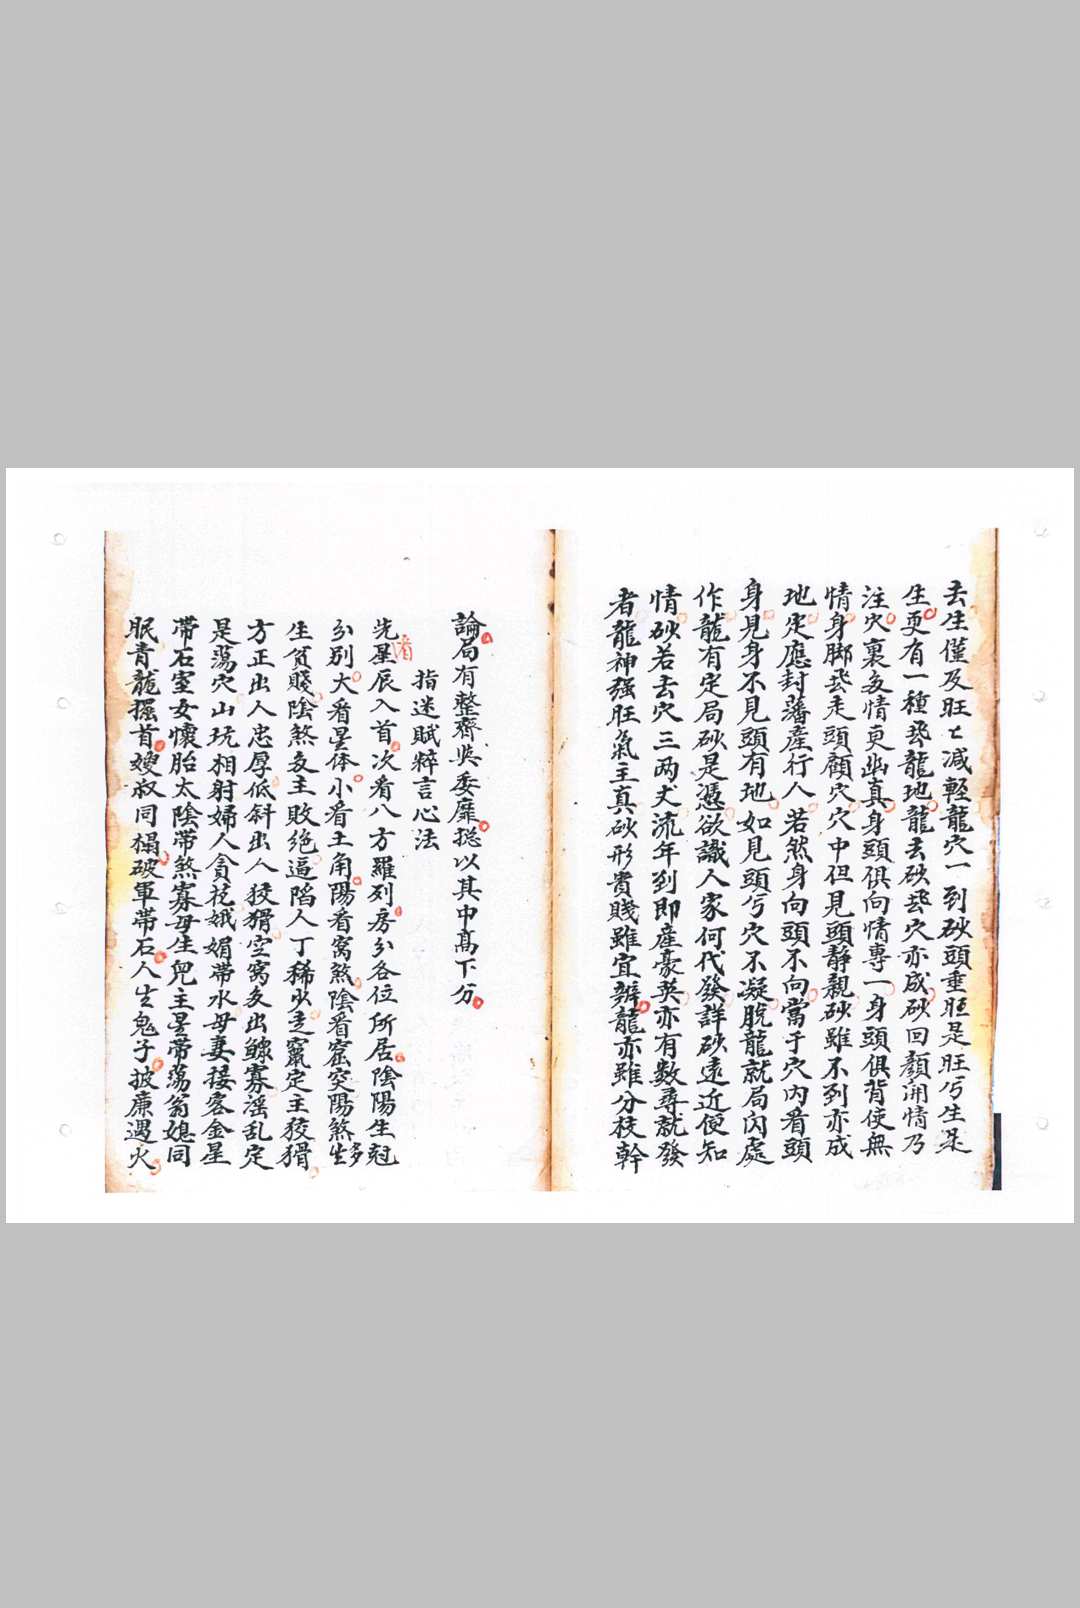 去生僅及旺亡減輕龍穴一到砂頭垂旺是旺丂生某
生更有一種飛龍地龍去砂飛穴亦成砂回顏開情乃
注穴裏多情更幽真身頭俱向情專一身頭俱背使無
情身脚飛走頭顧穴穴中但見頭靜親砂雖不列亦成
地定應封藩產行人若然身向頭不向當于穴内看頭
身見身不見頭有地如見頭丂穴不凝脫龍就局闪處
作龍有定局砂是憑欲識人家何代發詳砂遠近便知
情砂若去穴三两丈流年到即產豪英亦有數尋就發
者龍神强旺氣主真砂形貴賤雖宜辨龍亦雖分枝幹
論局有整齊吳委靡捴以其中髙下分
指迷賦粹言心法
先看星辰入首次看八方羅列房分各位所居陰陽生尅
分别大看星体小看土角陽看窩煞陰看窟突陽煞多生
生貧賤陰煞多主敗絕逼陷人丁稀少走竄定主狡猾
方正出人忠厚低斜出人狡猾空窩多出鰥寡滛乱定
是蕩穴山坑相射婦人貪花娥媚帶水母妻接客金星
帶石室女懷胎太陰帶煞寡母生兒主星帶蕩翁媳同
眠青龍擺首嫂叔同榻破軍帶石人生鬼子披廉遇火